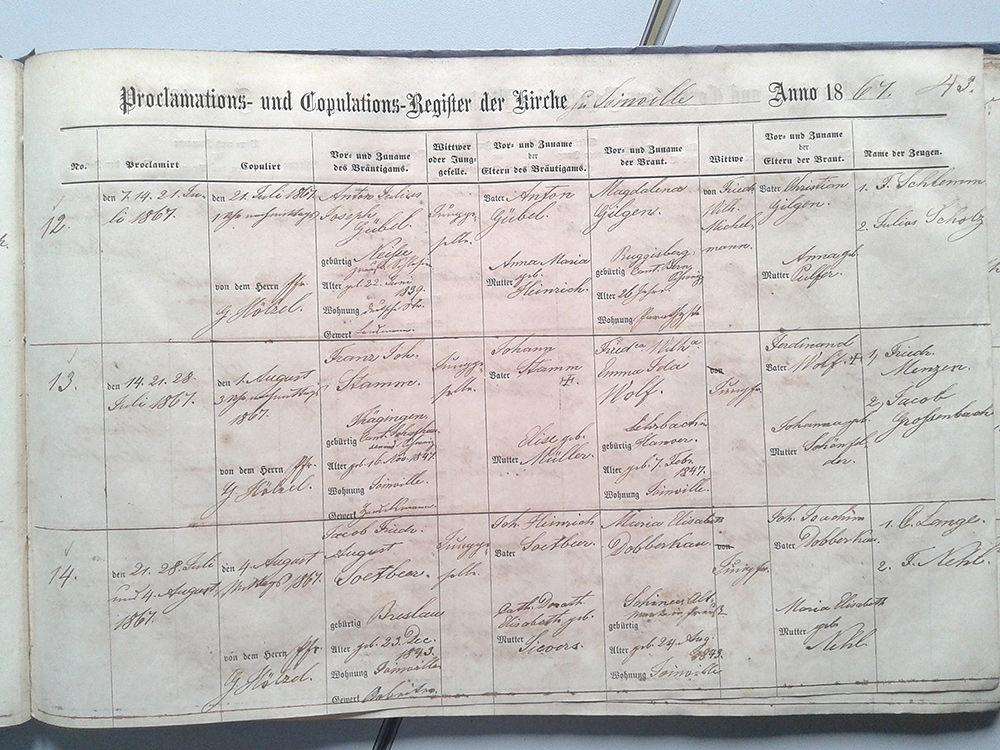 Proclamations- und Copulations-Register der Kirche zu Joinville Anno 1867. 43.
No.
Proclamirt
Copulirt
Vor- und Zuname
des Bräutigams.
Wittwer
oder Jung-
geselle.
Vor- und Zuname
der
Eltern des Bräutigams.
Vor- und Zuname
der Braut.
Wittwe
Vor- und Zuname
der
Eltern der Braut.
Name der Zeugen.
12.
den 7. 14. 21. Ju-
li 1867.
den 21. Juli 1867
von dem Herrn Pfr.
G. Hölzel.
Anton Julius
Joseph
Gübel.
gebürtig Neisse
Alter geb. 22. Juni
1839.
Wohnung
Gewerk
Jungge-
selle.
Vater Anton
Gübel.
Anna Maria
geb.
Mutter Heinrich.
Magdalena
Gilgen.
Ruggisberg
gebürtig Cant. Bern
Schweiz
Alter 26 Jahre.
Wohnung
von Friedr.
Wilh.
Michel-
mann.
Vater Christian
Gilgen.
Anna geb.
Mutter
1. F. Schlemm
2. Julius Scholz
13.
den 14. 21. 28.
Juli 1867.
den 1. August
1867.
von dem Herrn Pfr.
G. Hölzel.
Franz Joh.
Stamm.
gebürtig
Alter geb. 16. Nov. 1847.
Wohnung Joinville.
Gewerk
Jungge-
selle.
Johann
Vater Stamm
Elise geb.
Mutter Müller.
Fried.ca Wilh.a
Emma Ida
Wolf.
gebürtig Hanover.
Alter geb. 7. Febr.
1847.
Wohnung Joinville.
von
Jungfr.
Ferdinand
Vater Wolf.
Johanna geb.
Mutter Schönfel-
der.
1. Friedr.
Menzen.
2. Jacob
Grossenbach
14.
den 21. 28. Juli
und 4. August
1867.
den 4. August
1867.
von dem Herrn Pfr.
G. Hölzel.
Jacob Friedr.
August
Soetbeer.
gebürtig Breslau
Alter geb. 23. Dec.
1843.
Wohnung Joinville
Gewerk Arbeiter
Jungge-
selle.
Joh. Heinrich
Vater Soetbeer.
Cath. Doroth.
Elisabeth geb.
Mutter Sievers.
Maria Elisabeth
Dobberkau.
gebürtig
Alter geb. 24. Aug.
1843.
Wohnung Joinville
von
Jungfr.
Joh. Joachim
Vater Dobberkau.
Maria Elisabeth
Mutter geb.
Nehl.
1. C. Lange.
2. F. Nehl.